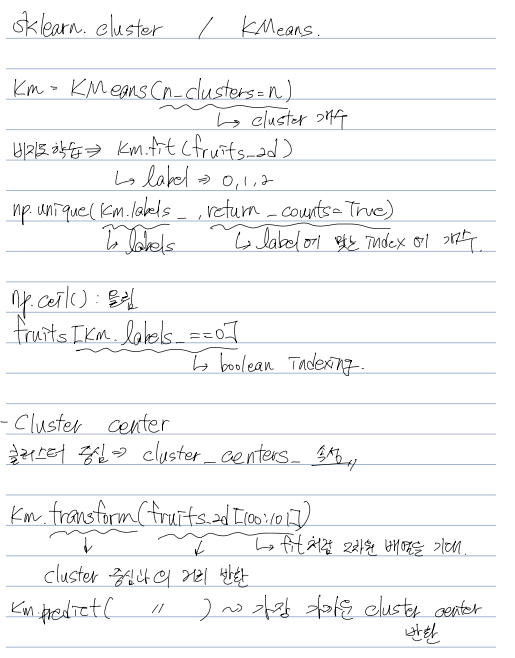 sklearn.cluster / KMeans.
Km = KMeans(n_clusters=n)
↳ cluster 개수
비지도학습⇒ Km.fit(fruits_2d)
↳ label ⇒ 0,1,2
np.unique(Km.labels_, return_counts=True)
↳ labels ↳ label에 맞는 index 의 개수.
np.ceil() : 올림
fruits[Km.labels_==0]
↳ boolean indexing.
- Cluster center
클러스터 중심⇒ cluster_centers_ 속성〃
Km.transform(fruits_2d[100:101])
↓ ↙ ↳ fit처럼 2차원 배열을 기대.
cluster 중심과의 거리 반환
Km.predict( 〃 ) ~ 가장 가까운 cluster center
반환